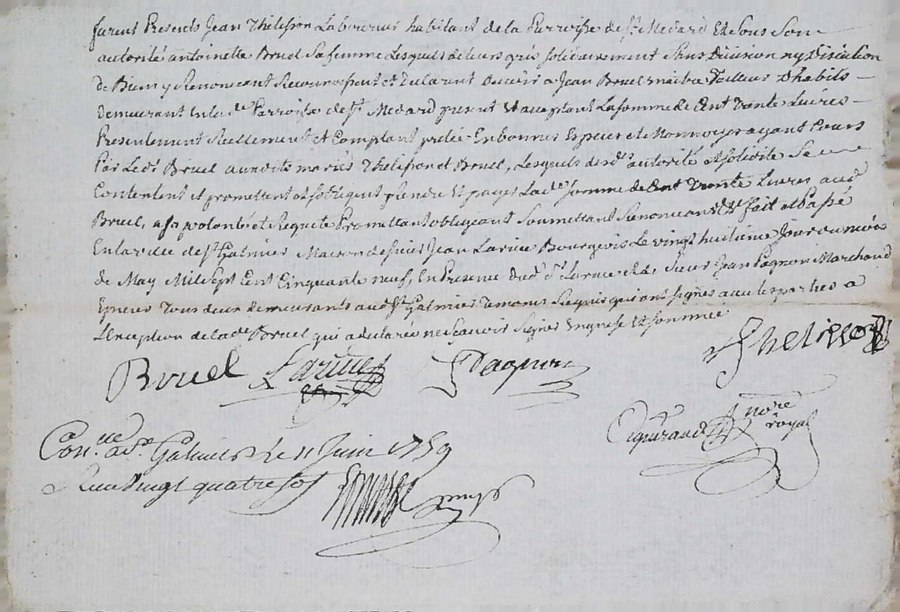 furent Presents Jean Thelisson Laboureur habitant de la Parroisse de st Medard Et sous son
autorité antoinette Bruel sa femme Lesquels de leurs gré solidairement sans Division ny Discution
de Biens y Renoncant Reconnoissent et declarent Devoir a Jean Bruel maitre Tailleur Dhabits
demeurant en lad. Parroisse de st Medard present et acceptant La somme de Cent trente Livres
Presentement Reellement et Comptant pretée En bonnes Especes et Monnoyes ayant Cours
Par Led. Bruel auxdits mariés Thelisson et Bruel, Lesquels desd. autorité et solidité se
Contentent et promettent et s'obligent rendre et payer lade somme de Cent trente Livres aud
Bruel, a sa volonté et Requete Promettant obligeant Soumettant Renoncant &c fait et Passé
En la ville de st Galmier Maison de sieur Jean Larue Bourgeois Le vingt huitieme Jour du mois
de May Mil sept Cent Cinquante neuf, En Presence dud. sr Larue et de sieur Jean Pagnon Marchand
Epicier Tous deux demeurants aud st Galmier Temoins Requis qui ont signés avec les parties a
L'Exception de lade Bruel qui a declaré ne scavoir signer Enquise et sommée
Bruel Larue Pagnon Thelisson
nore royal
Con.lle a st Galmier le 11 Juin 1759
Recu vingt quatre sols